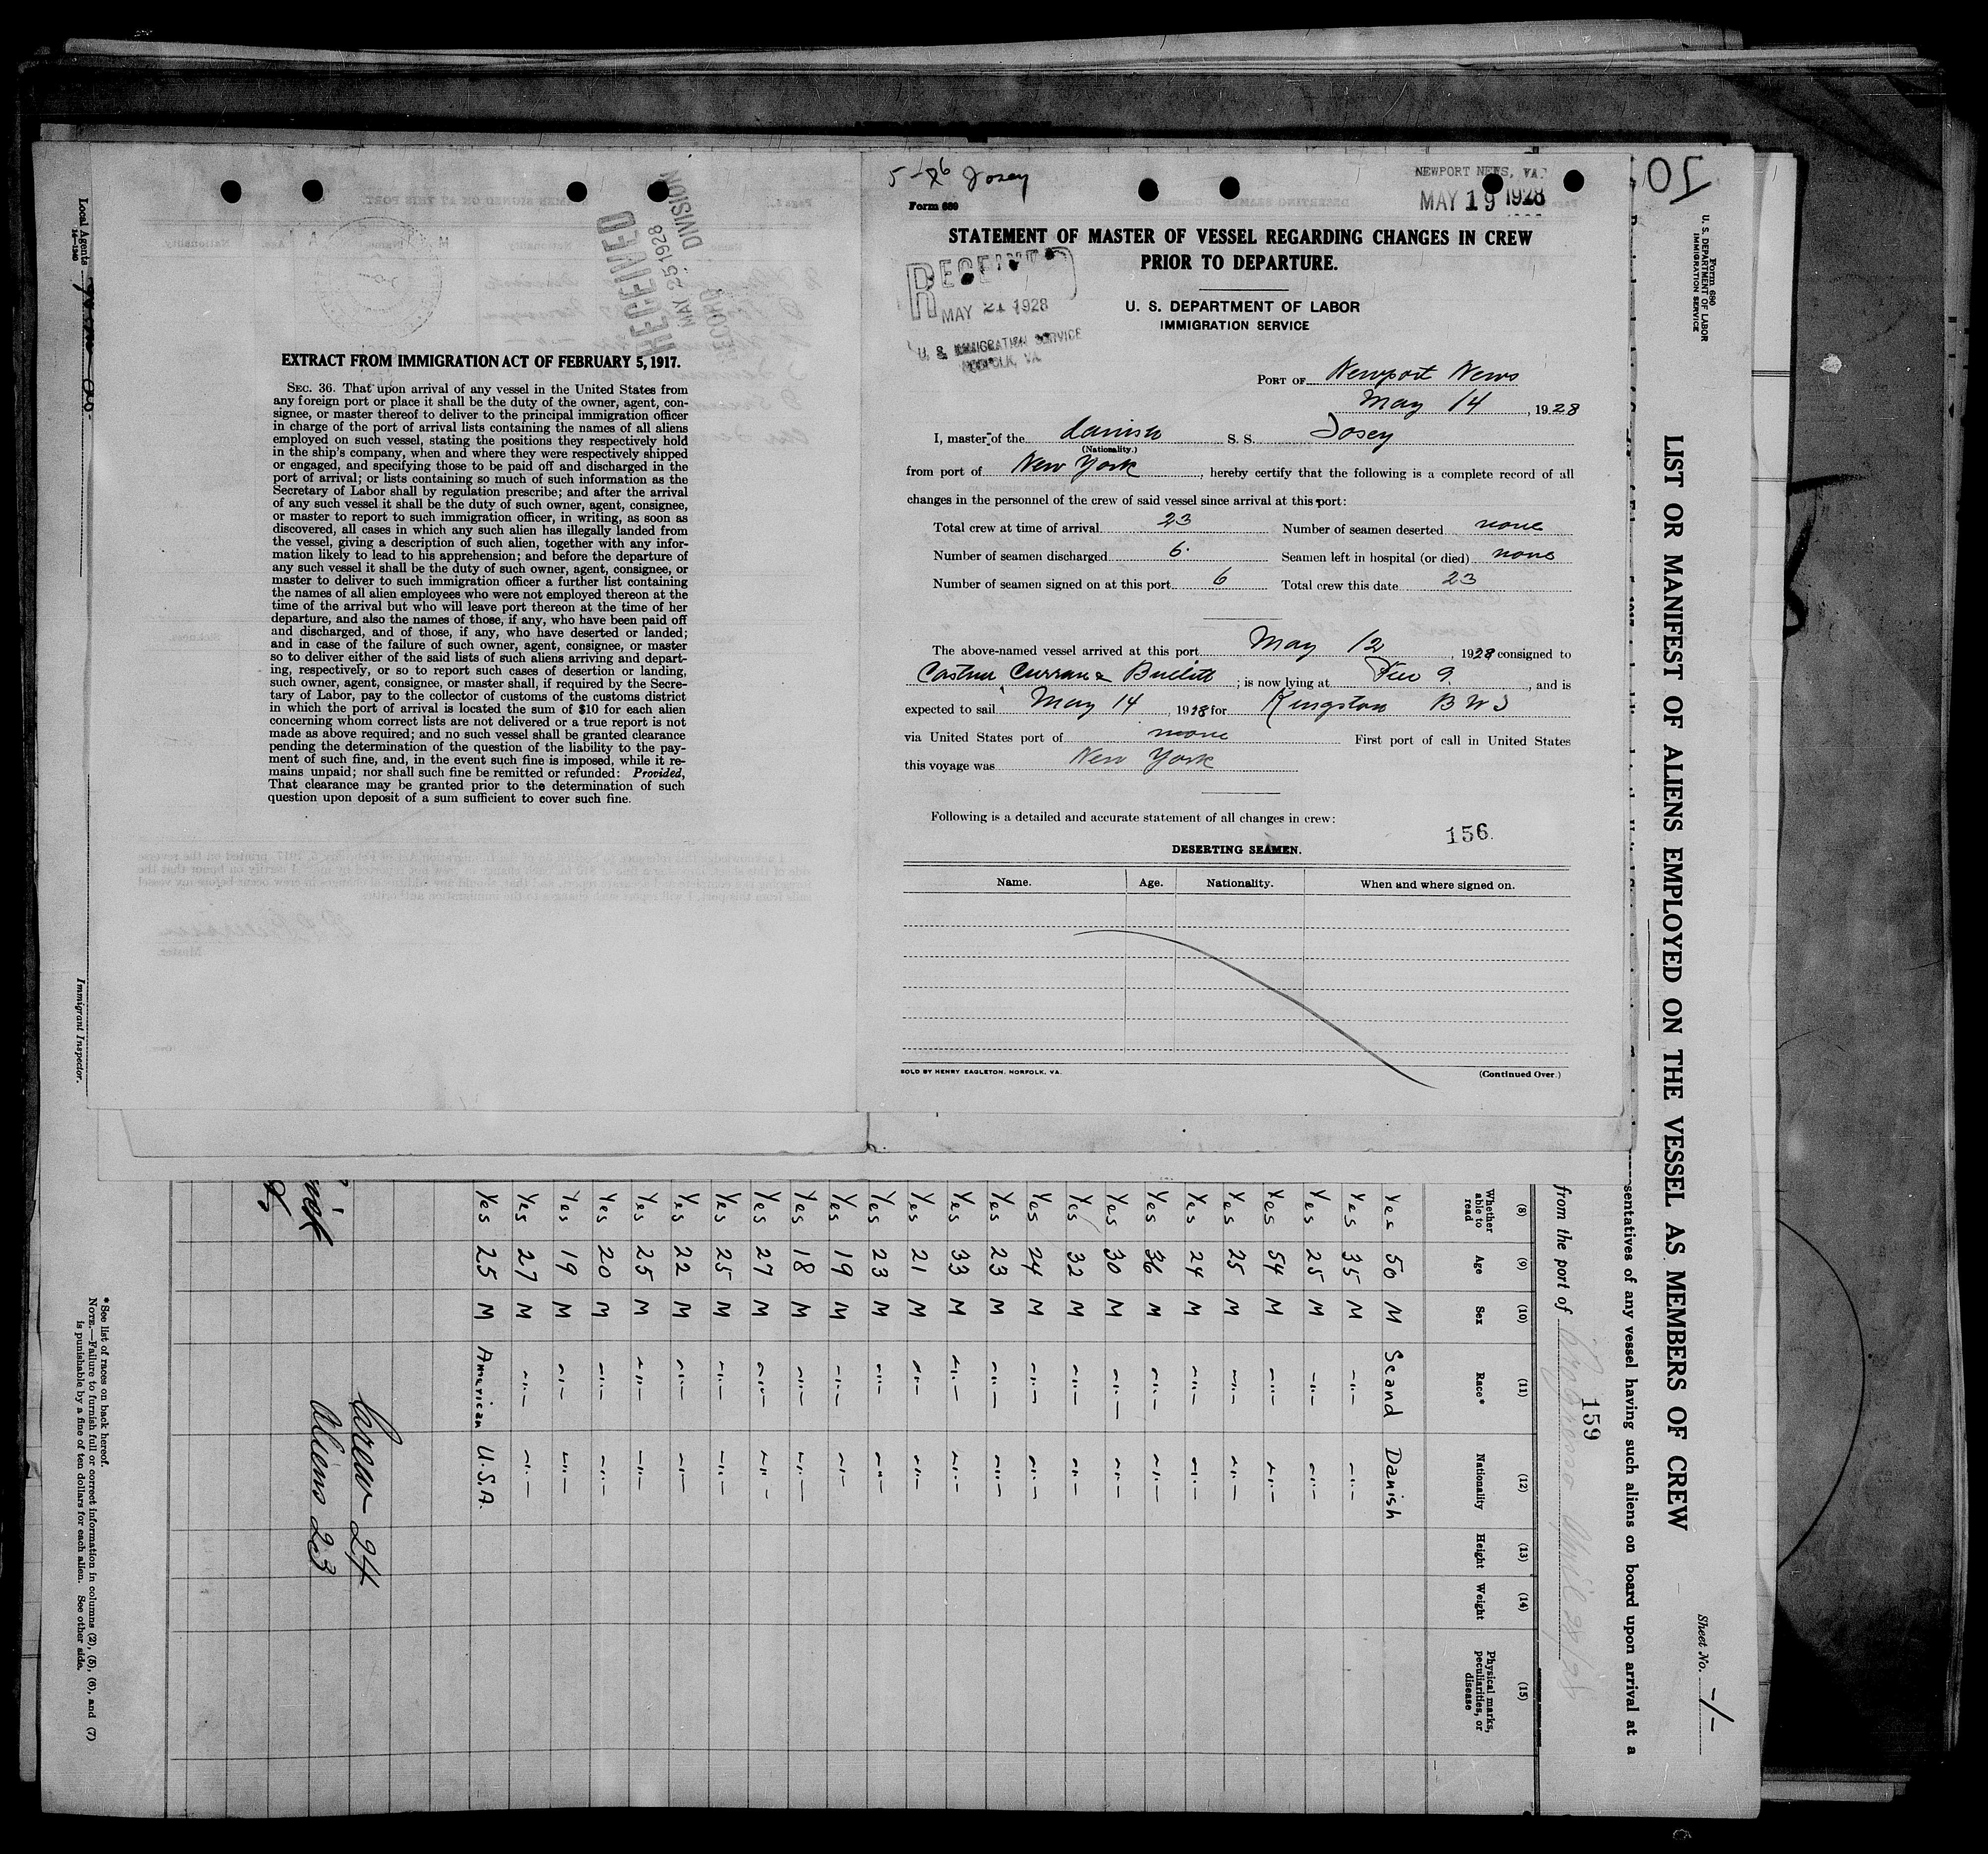 Local Agents
14—1240
Immigrant Inspector.
RECEIVED
MAY 25 1928
RECORD DIVISION
EXTRACT FROM IMMIGRATION ACT OF FEBRUARY 5, 1917.
SEC. 36. That upon arrival of any vessel in the United States from
any foreign port or place it shall be the duty of the owner, agent, con-
signee, or master thereof to deliver to the principal immigration officer
in charge of the port of arrival lists containing the names of all aliens
employed on such vessel, stating the positions they respectively hold
in the ship's company, when and where they were respectively shipped
or engaged, and specifying those to be paid off and discharged in the
port of arrival; or lists containing so much of such information as the
Secretary of Labor shall by regulation prescribe; and after the arrival
of any such vessel it shall be the duty of such owner, agent, consignee,
or master to report to such immigration officer, in writing, as soon as
discovered, all cases in which any such alien has illegally landed from
the vessel, giving a description of such alien, together with any infor-
mation likely to lead to his apprehension; and before the departure of
any such vessel it shall be the duty of such owner, agent, consignee, or
master to deliver to such immigration officer a further list containing
the names of all alien employees who were not employed thereon at the
time of the arrival but who will leave port thereon at the time of her
departure, and also the names of those, if any, who have been paid off
and discharged, and of those, if any, who have deserted or landed;
and in case of the failure of such owner, agent, consignee, or master
so to deliver either of the said lists of such aliens arriving and depart-
ing, respectively, or so to report such cases of desertion or landing,
such owner, agent, consignee, or master shall, if required by the Secre-
tary of Labor, pay to the collector of customs of the customs district
in which the port of arrival is located the sum of $10 for each alien
concerning whom correct lists are not delivered or a true report is not
made as above required; and no such vessel shall be granted clearance
pending the determination of the question of the liability to the pay-
ment of such fine, and, in the event such fine is imposed, while it re-
mains unpaid; nor shall such fine be remitted or refunded: Provided,
That clearance may be granted prior to the determination of such
question upon deposit of a sum sufficient to cover such fine.
Josey
NEWPORT NEWS, VA.
MAY 19 1928
Form 689
STATEMENT OF MASTER OF VESSEL REGARDING CHANGES IN CREW
PRIOR TO DEPARTURE.
RECEIVED
MAY 21 1928
U. S. IMMIGRATION SERVICE
NORFOLK, VA.
U. S. DEPARTMENT OF LABOR
IMMIGRATION SERVICE
PORT OF Newport News
May 14, 1928
I, master of the danish S. S. Josey
(Nationality.)
from port of New York, hereby certify that the following is a complete record of all
changes in the personnel of the crew of said vessel since arrival at this port:
Total crew at time of arrival 23 Number of seamen deserted none
Number of seamen discharged 6. Seamen left in hospital (or died) none
Number of seamen signed on at this port 6 Total crew this date 23
The above-named vessel arrived at this port May 12, 1928 consigned to
Castner Curran & Bullitt; is now lying at Pier 9, and is
expected to sail May 14, 1928 for Kingston B W I
via United States port of none First port of call in United States
this voyage was New York
Following is a detailed and accurate statement of all changes in crew:
156
DESERTING SEAMEN.
Name. Age. Nationality. When and where signed on.
SOLD BY HENRY EAGLETON, NORFOLK, VA.
(Continued Over.)
Form 680
U. S. DEPARTMENT OF LABOR
IMMIGRATION SERVICE
Sheet No. -1-
LIST OR MANIFEST OF ALIENS EMPLOYED ON THE VESSEL AS MEMBERS OF CREW
sentatives of any vessel having such aliens on board upon arrival at a
159
from the port of April 28/28
(8) (9) (10) (11) (12) (13) (14) (15)
Whether able to read Age Sex Race* Nationality Height Weight Physical marks, peculiarities, or disease
Yes 50 M Scand Danish
Yes 35 M -"- -"-
Yes 25 M -"- -"-
Yes 54 M -"- -"-
Yes 25 M -"- -"-
Yes 24 M -"- -"-
Yes 36 M -"- -"-
Yes 30 M -"- -"-
Yes 32 M -"- -"-
Yes 24 M -"- -"-
Yes 23 M -"- -"-
Yes 33 M -"- -"-
Yes 21 M -"- -"-
Yes 23 M -"- -"-
Yes 19 M -"- -"-
Yes 18 M -"- -"-
Yes 27 M -"- -"-
Yes 25 M -"- -"-
Yes 22 M -"- -"-
Yes 25 M -"- -"-
Yes 20 M -"- -"-
Yes 19 M -"- -"-
Yes 27 M -"- -"-
Yes 25 M American U.S.A.
Crew 24
Aliens 23
*See list of races on back hereof.
NOTE.—Failure to furnish full or correct information in columns (2), (5), (6), and (7)
is punishable by a fine of ten dollars for each alien. See other side.